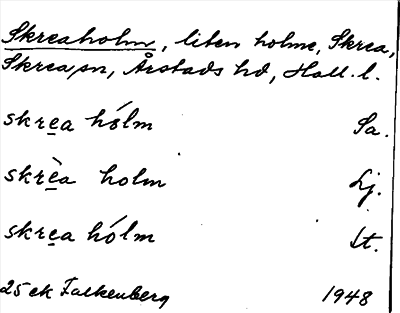 Skreaholm, liten holme, Skrea,
Skrea sn, Årstads hd, Hall. l.
skrea hólm Sa.
skrèa holm Lj.
skrea hólm St.
25 ek Falkenberg 1948